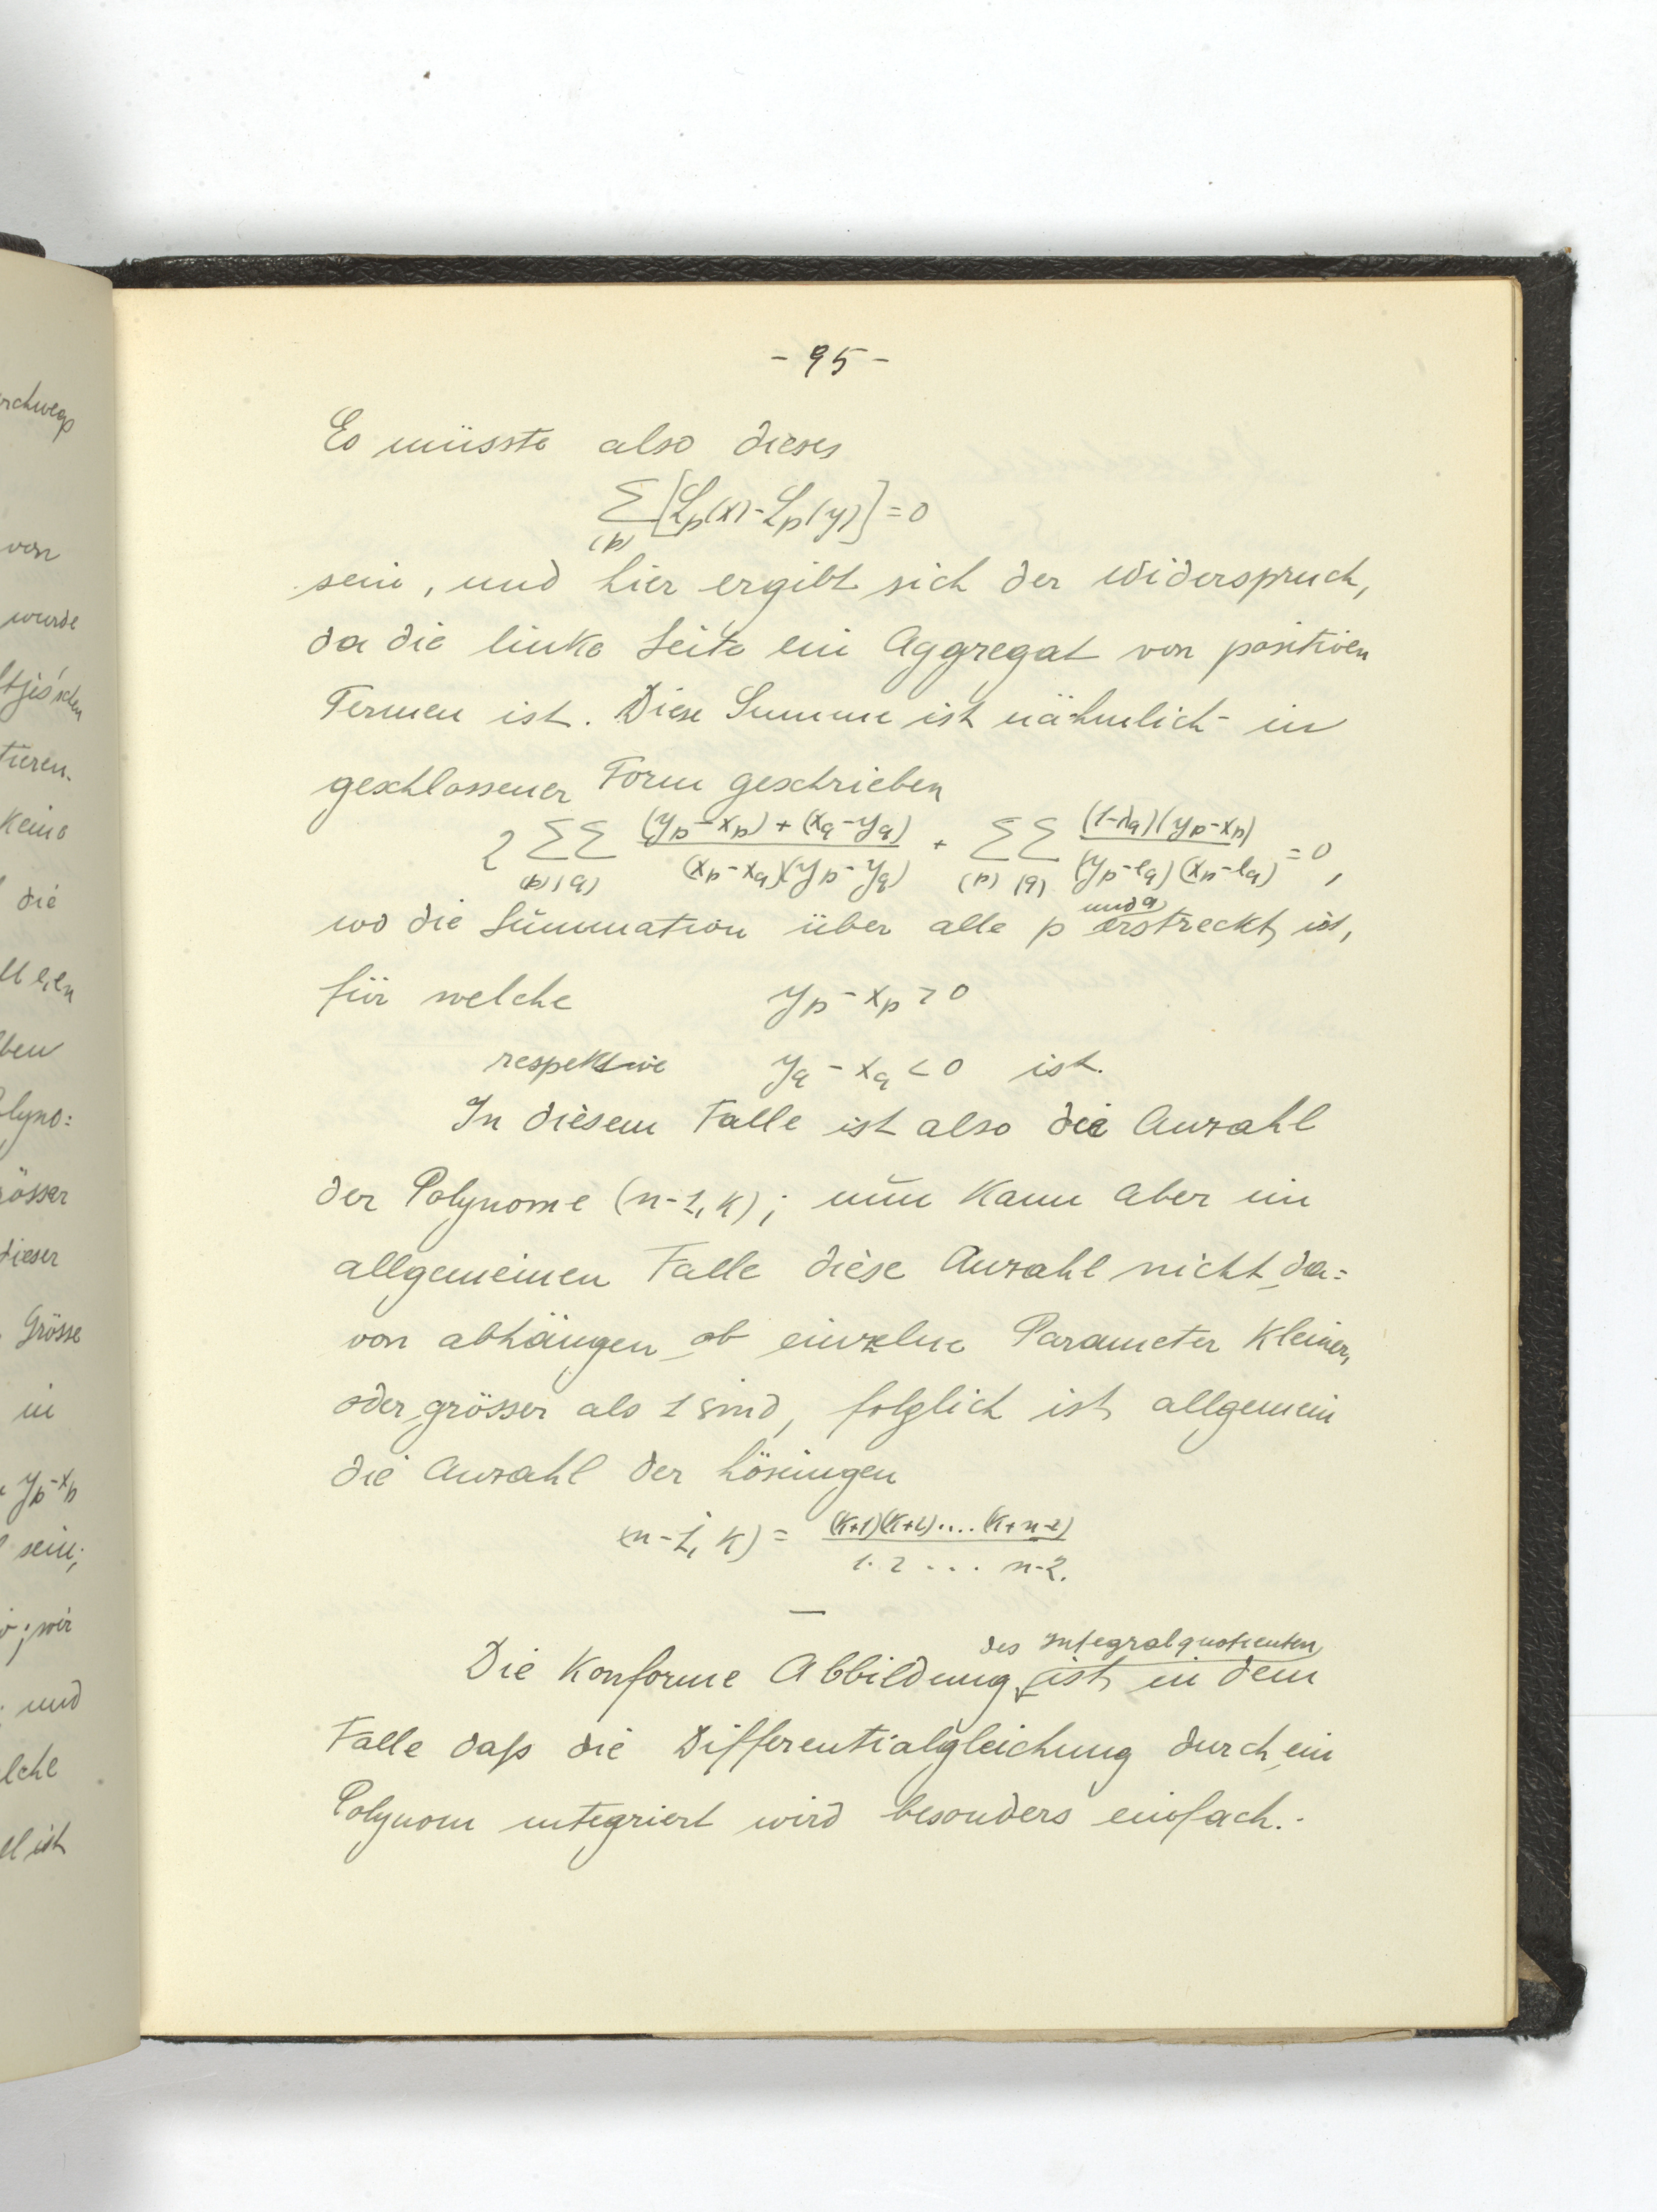 rchwegs
von
wurde
ltjes'schen
tieren.
Keine
die
ben
Polyno:
rösser
dieser
Grösse
in
y_p-x_p
sein;
; wir
; und
lche
el ist
- 95 -
Es müsste also dieses
∑_(p) [L_p(x) - L_p(y)] = 0
sein, und hier ergibt sich der Widerspruch,
da die linke Seite ein Aggregat von positiven
Termen ist. Diese Summe ist nähmlich in
geschlossener Form geschrieben
2 ∑_(p) ∑_(q) ((y_p - x_p) + (x_q - y_q)) / ((x_p - x_q)(y_p - y_q)) + ∑_(p) ∑_(q) ((1-λ_q)(y_p - x_p)) / ((y_p - l_q)(x_p - l_q)) = 0,
wo die Summation über alle p und q erstreckt ist,
für welche y_p - x_p > 0
respektive y_q - x_q < 0 ist.
In diesem Falle ist also die Anzahl
der Polynome (n-1, k); nun kann aber im
allgemeinen Falle diese Anzahl nicht da=
von abhängen ob einzelne Parameter kleiner,
oder grösser als 1 sind, folglich ist allgemein
die Anzahl der Lösungen
(n-1, k) = ((k+1)(k+2)....(k+n-2)) / (1. 2 ... n-2.)
Die Konforme Abbildung des Integralquotienten ist in dem
Falle daß die Differentialgleichung durch ein
Polynom integriert wird besonders einfach.